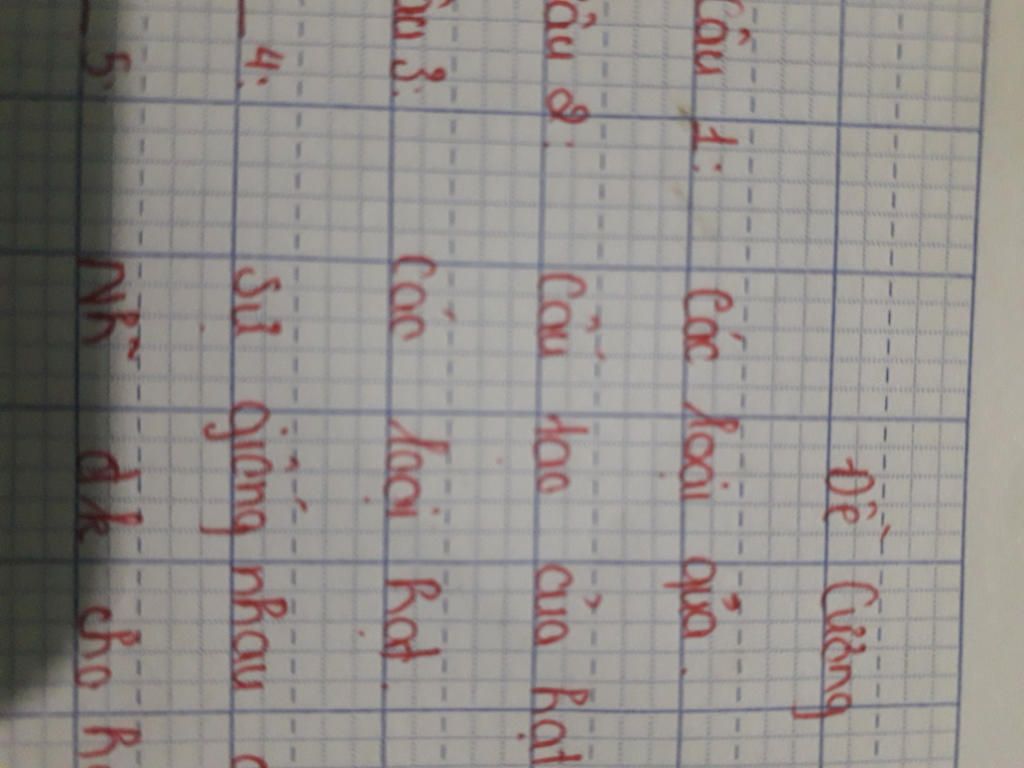 Đề Cương
Câu 1: Các loài quả.
Câu 2: Cấu tạo của hạt
Câu 3: Các loại hạt.
4: Sự giống nhau
5: Nh~ đk cho